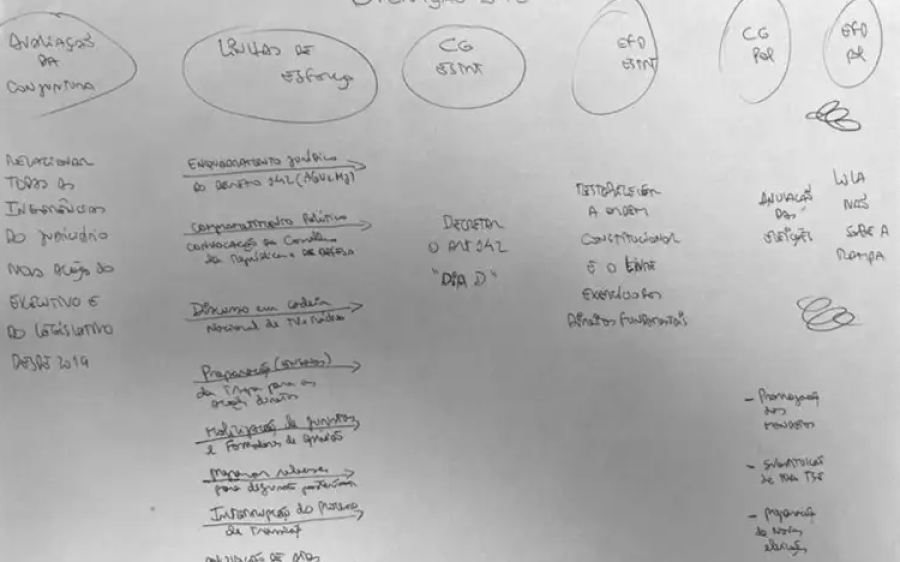 AVALIAÇÃO
DA
CONJUNTURA
LINHAS DE
ESFORÇO
CG
ESINT
EFD
ESINT
CG
POL
EFD
POL
RELACIONAR
TODAS AS
INGERÊNCIAS
DO JUDICIÁRIO
NAS AÇÕES DO
EXECUTIVO E
DO LEGISLATIVO
DESDE 2019
ENQUADRAMENTO JURÍDICO
DO DECRETO 142 (AGU e MJ)
COMPROMETIMENTO POLÍTICO
CONVOCAÇÃO DO CONSELHO
DA REPÚBLICA E DA DEFESA
DISCURSO EM CADEIA
NACIONAL DE TV E RÁDIO
PREPARAÇÃO
DA TROPA PARA AS
AÇÕES DIRETAS
MOBILIZAÇÃO DE JURISTAS
E FORMADORES DE OPINIÃO
PREPARAR
PARA
INTERRUPÇÃO DO PROCESSO
DE TRANSIÇÃO
DE ATOS
DECRETAR
O ART 142
"DIA D"
RESTABELECER
A ORDEM
CONSTITUCIONAL
E O LIVRE
EXERCÍCIO DOS
DIREITOS FUNDAMENTAIS
ANULAÇÃO
DAS
ELEIÇÕES
LULA
NÃO
SOBE A
RAMPA
- PRORROGAÇÃO
DOS
MANDATOS
- SUBSTITUIÇÃO
DE TODO TSE
- PREPARAÇÃO
DE NOVAS
ELEIÇÕES